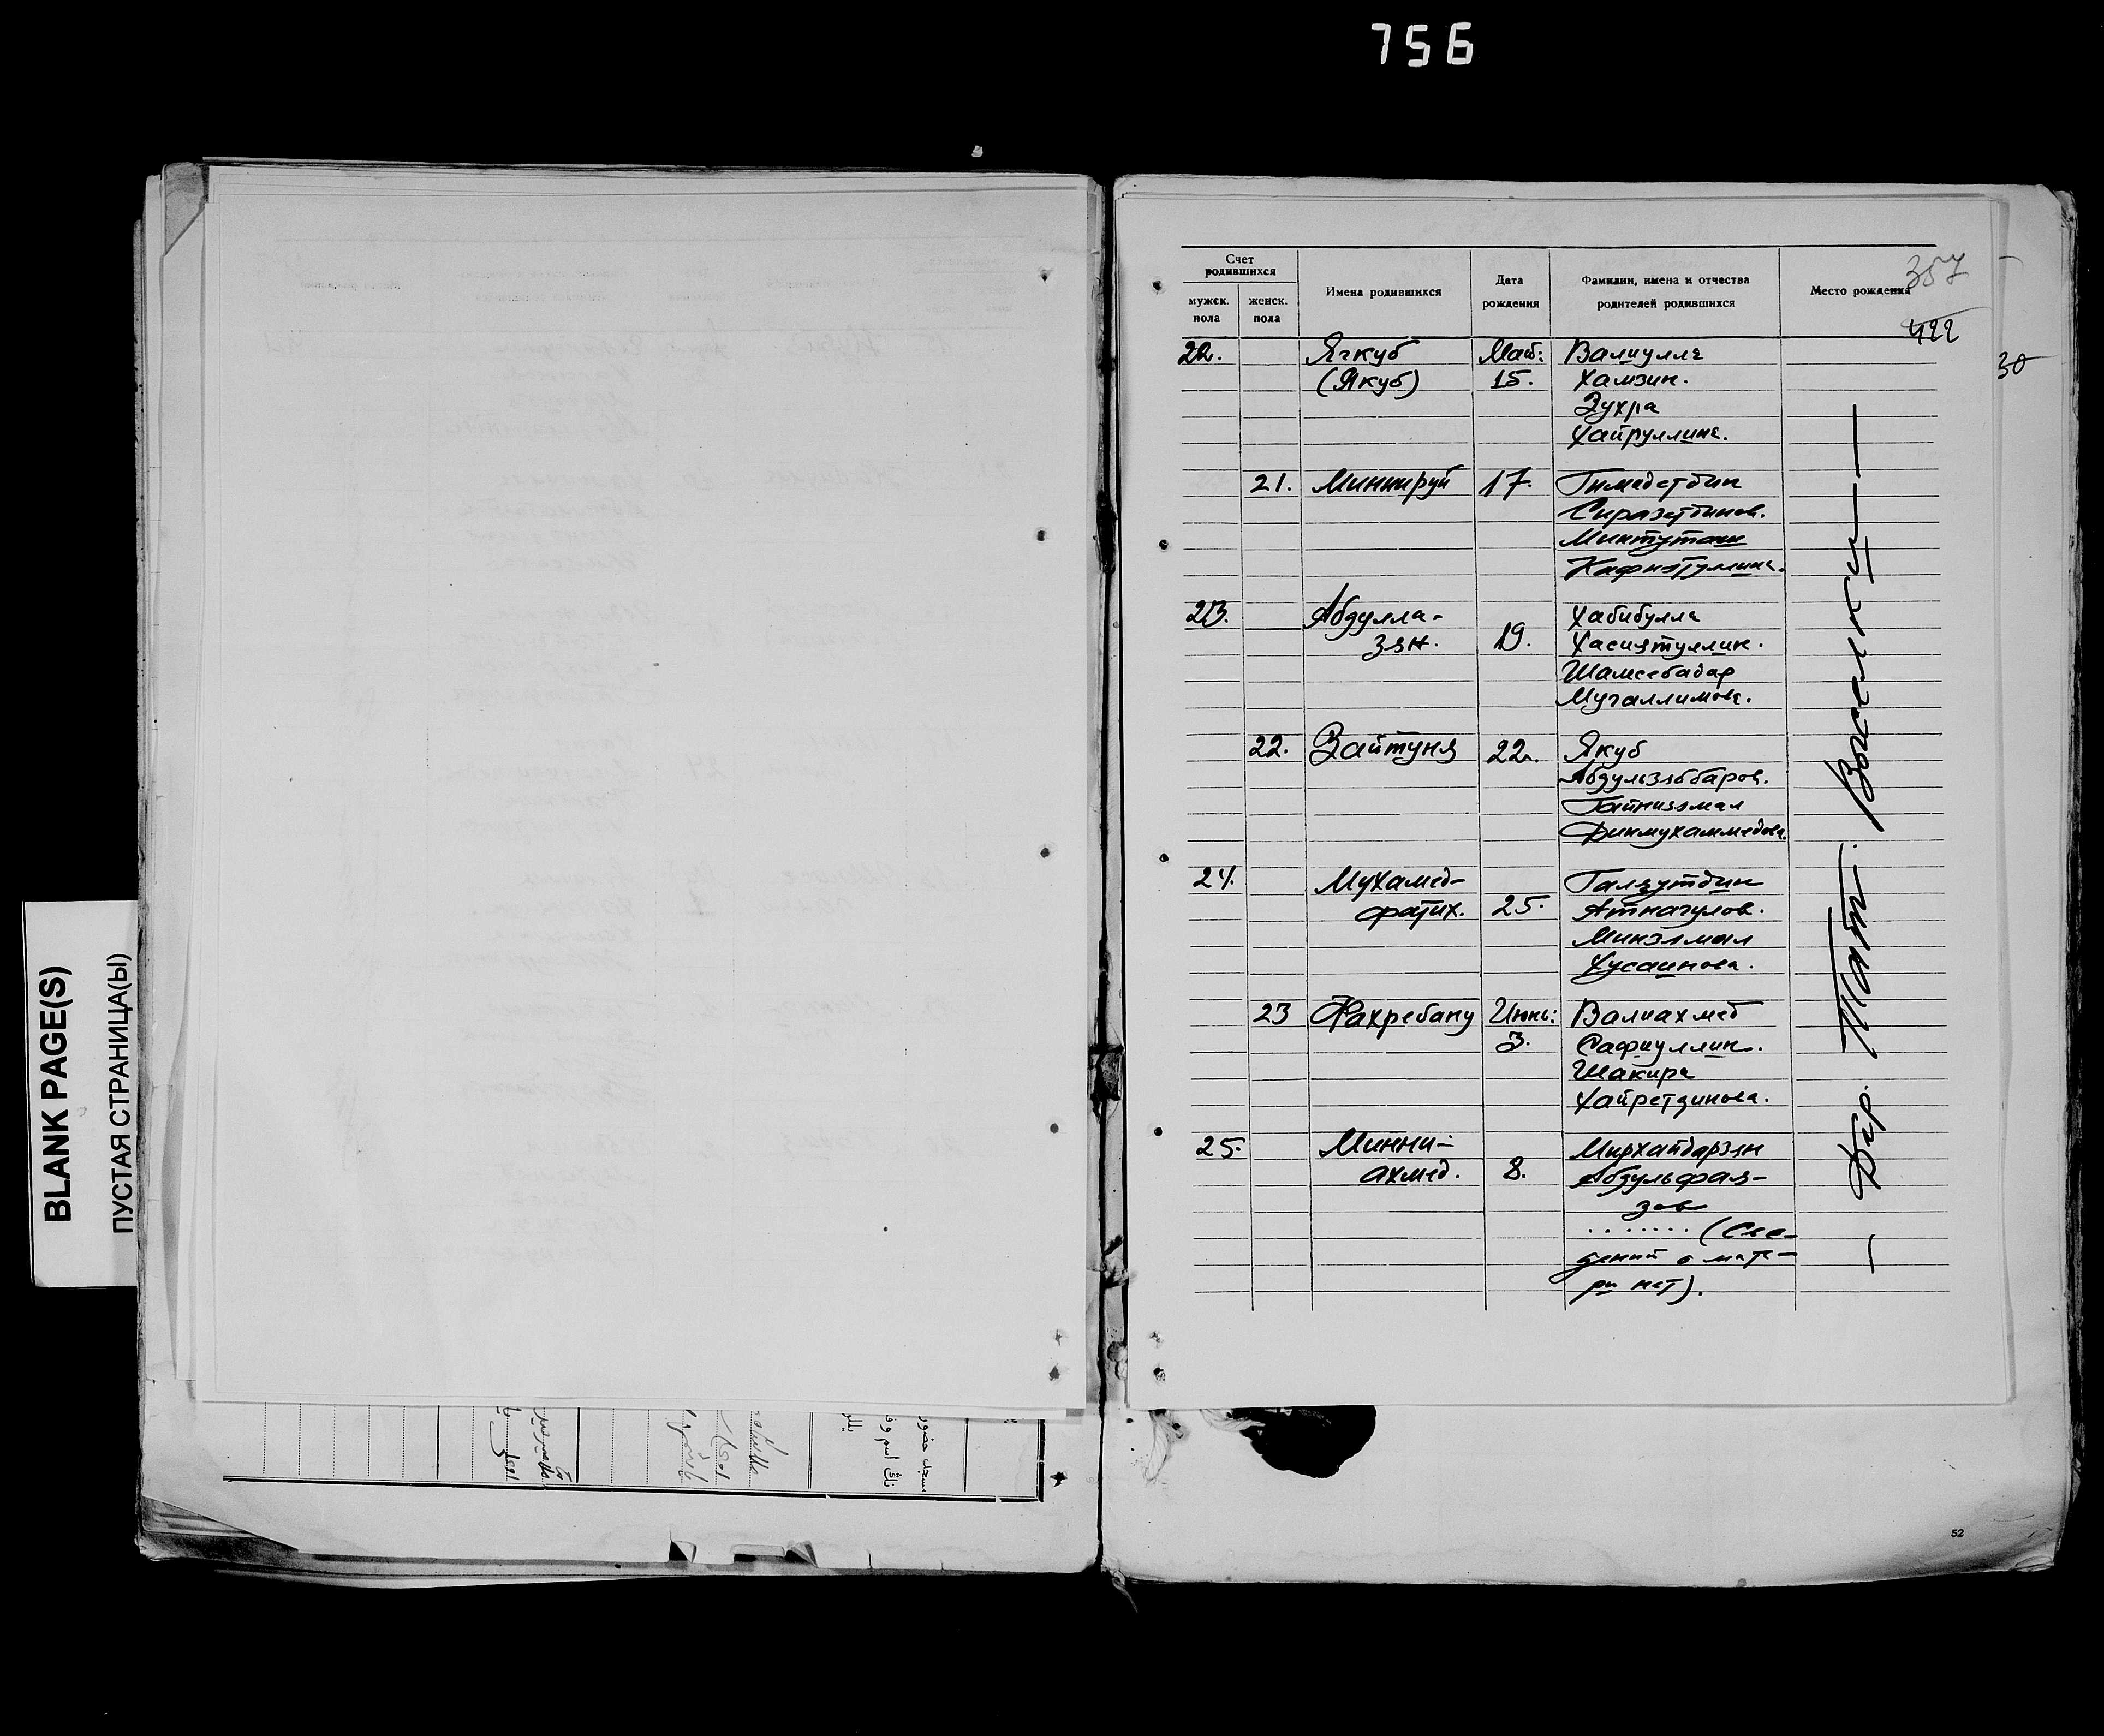 756
BLANK PAGE(S)
ПУСТАЯ СТРАНИЦА(Ы)
357
422
30
Счет родившихся
мужск. пола
женск. пола
Имена родившихся
Дата рождения
Фамилии, имена и отчества родителей родившихся
Место рождения
22. Ягкуб Май: Валиулла
(Якуб) 15. Хамзин.
Зухра
Хайруллина.
21. Миннируй 17. Гимадетдин
Сиразетдинов.
Минтуташ
Хафизуллина.
23. Абдулла- Хабибулла
зян. 19. Хасиятуллин.
Шамсебадар
Мугаллимова.
22. Зайтуня 22. Якуб
Абдульзяббаров.
Гайниямал
Динмухаммедова.
24. Мухамед- Галяутдин
фатих. 25. Атнагулов.
Минзямал
Хусаинова.
23 Фахребану Июнь: Валиахмед
3. Сафиуллин.
Шакира
Хайретдинова.
25. Минни- Мирхайдарзян
ахмед. 8. Абдульфая-
зов
....... (Све-
дений о мате-
ри нет).
— Дер. Тат.
52